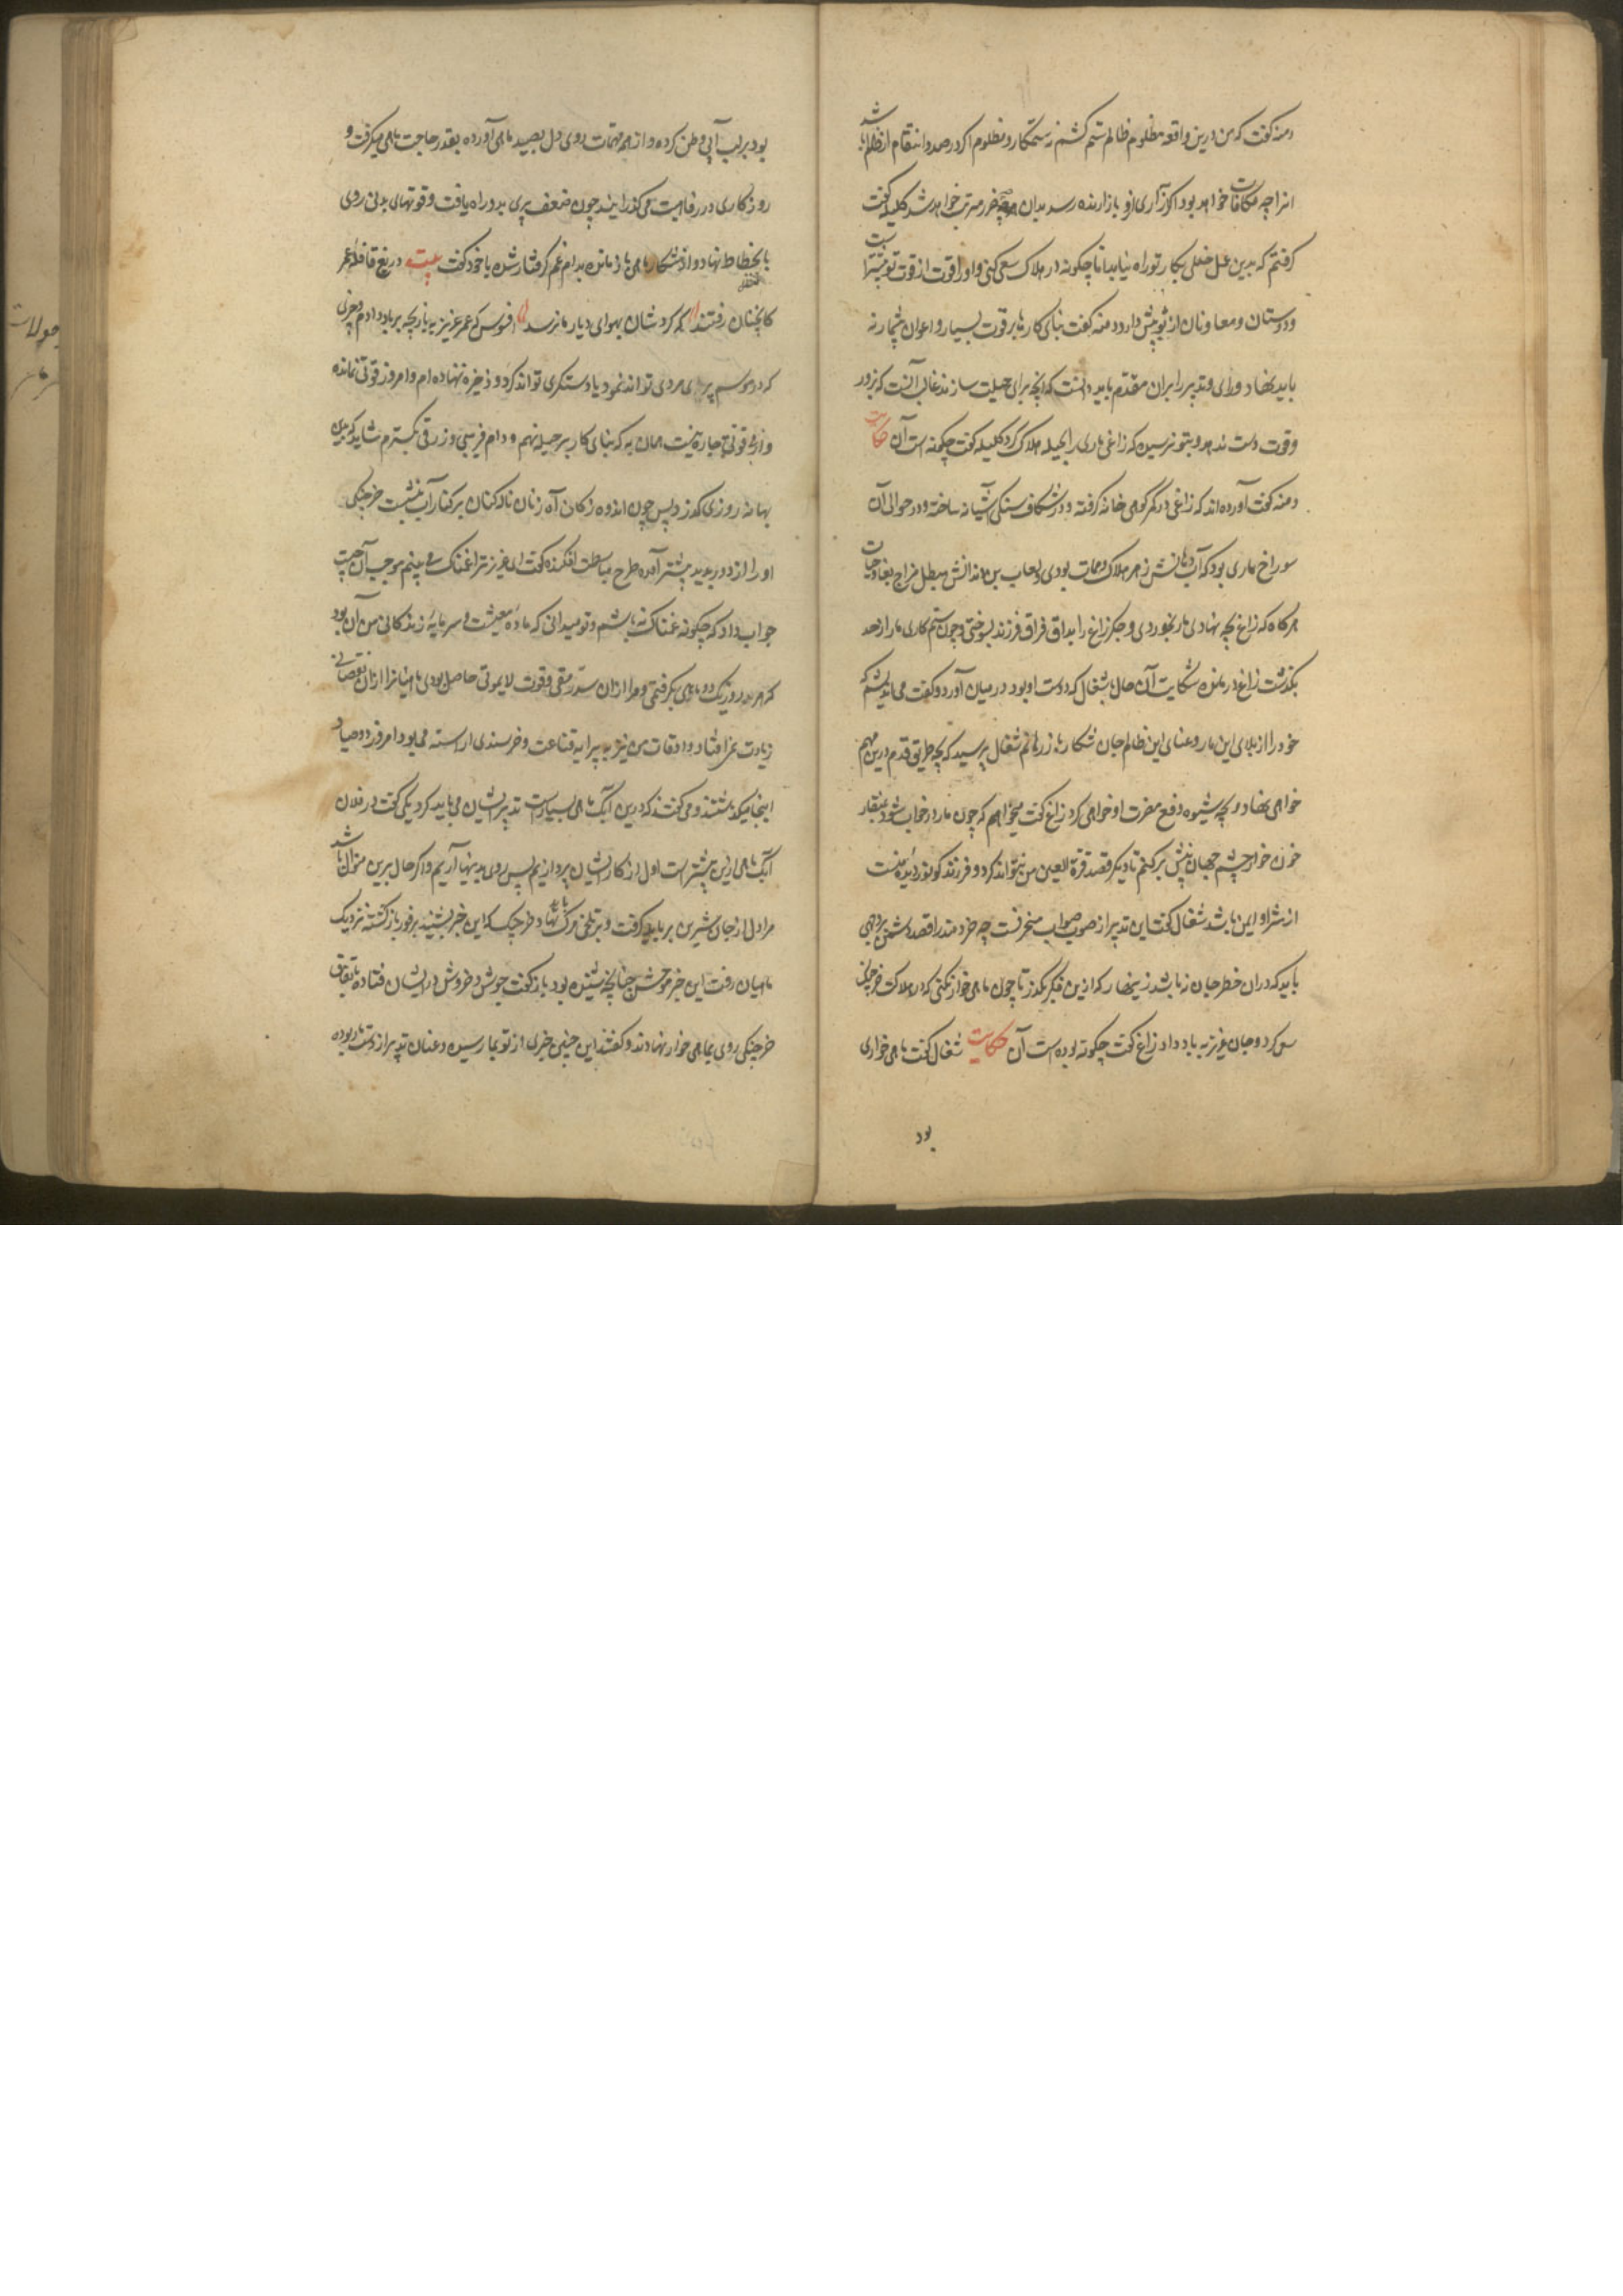 دمنه گفت که من درین واقعه مظلوم ظالم ستم کشم نه ستمکار و مظلوم اگر در صدد انتقام از ظالم باشد
انرا چه مکافات خواهد بود اگر آزاری ازو بازارنده رسد بدان چه ضرر مترتب خواهد شد کلیله گفت
گرفتم که بدین عمل خللی بکار تو راه نیابد اما چگونه در هلاک سعی کنی و او را قوت از قوت تو بیشتر است
و دوستان و معاونان از تو بیش دارد دمنه گفت بنای کارها بر قوت بسیار و اعوان بیشمار نه
باید نهاد و رای و تدبیر را بران مقدم باید دانست که آنچه برای حیلت سازند غالب آنست که بزور
و قوت دست ندهد و بتو نرسیده که زاغی ماری را بحیله هلاک کرد کلیله گفت چگونه است آن حکایت
دمنه گفت آورده اند که زاغی در کمر کوهی خانه گرفته و در شکاف سنگی آشیانه ساخته و در حوالی آن
سوراخ ماری بود که آب دهانش زهر هلاک و ممات بودی و لعاب بن دندانش مبطل مزاج بقا و حیات
هرگاه که زاغ بچه نهادی مار بخوردی و جگر زاغ را بداغ فراق فرزند بسوختی و چون ستم کاری مار از حد
بگذشت زاغ درمانده شکایت آن حال با شغال که دوست او بود در میان آورد و گفت می اندیشم که
خود را از بلای این مار و عنای این ظالم جان شکار باز رهانم شغال پرسید که بچه طریق قدم درین مهم
خواهی نهاد و بچه شیوه دفع مضرت او خواهی کرد زاغ گفت میخواهم که چون مار در خواب شود بمنقار
خون خوار چشم جهان بینش برکنم تا دیگر قصد قرة العین من نتواند کرد و فرزند که نور دیده منست
از شر او ایمن باشد شغال گفت این تدبیر از صوب صواب منحرفست چه خردمند را قصد دشمن بر وجهی
باید که دران خطر جان نباشد زینهار که ازین فکر بگذر تا چون ماهی خوار نکنی که در هلاک خرچنگ
سعی کرد و جان عزیز به باد داد زاغ گفت چگونه بوده است آن حکایت شغال گفت ماهی خواری
بود
بود بر لب آبی وطن کرده و از همه مهمات روی دل بصید ماهی آورده بقدر حاجت ماهی میگرفت و
روزگاری در رفاهیت می گذرانید چون ضعف پیری بدو راه یافت و قوتهای بدنی روی
بانحطاط نهاد و از شکار ماهی باز مانده بدام غم گرفتار شده با خود گفت بیت دریغ قافله عمر
کانچنان رفتند که گردشان بهوای دیار ما نرسد افسوس که عمر عزیز به بازیچه بر باد دادم و چیزی
که در موسم پیری مددی تواند نمود یا دستگیری تواند کرد ذخیره ننهاده ام و امروز قوتی نمانده
و از بی قوتی چاره نیست همان به که بنای کار بر حیله نهم و دام فریبی و زرقی بگسترم شاید که بدین
بهانه روزی گذرد پس چون اندوه زدگان آه زنان ناله کنان بر کنار آب بنشست خرچنگی
او را از دور بدید پیشتر آمده طرح مباسطت افکنده گفت ای عزیز ترا غمناک می بینم موجب آن چیست
جواب داد که چگونه غمناک نباشم و تو میدانی که ماده معیشت و سرمایه زندگانی من آن بود
که هر روز یک دو ماهی بگرفتمی و مرا ازان سد رمقی و قوت لایموتی حاصل بودی ماهیانرا ازان نقصانی
زیادت نمی افتاد و اوقات من نیز به پیرایه قناعت و خرسندی آراسته می بود امروز دو صیاد
اینجا میگذشتند و می گفتند که درین آبگیر ماهی بسیارست تدبیر ایشان می باید کرد یکی گفت در فلان
آبگیر ماهی ازین بیشتر است اول از کار ایشان پردازیم پس روی بدینها آریم و اگر حال برین منوال باشد
مرا دل از جان شیرین بر باید گرفت و بر تلخی مرگ نهاد خرچنگ که این خبر بشنید بر فور باز گشته نزدیک
ماهیان رفت این خبر موحش چنانچه شنیده بود باز گفت جوش و خروش در ایشان فتاده باتفاق
خرچنگ روی بماهی خوار نهادند و گفتند این چنین خبری از تو بما رسیده و عنان تدبیر از دست ما ربوده